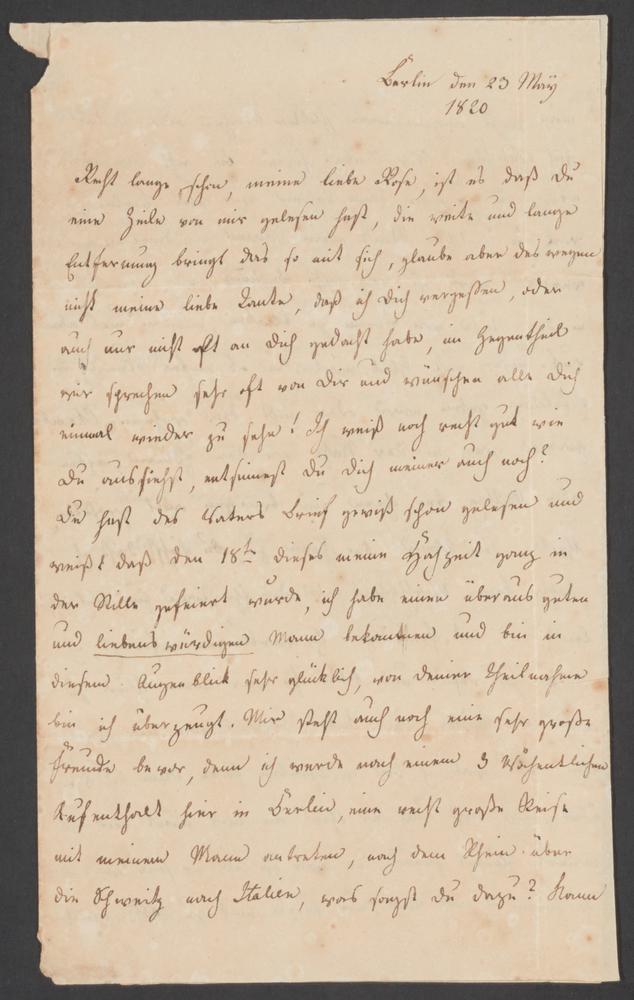 Berlin den 23 May
1820
Recht lange schon, meine liebe Rose, ist es daß Du
eine Zeile von mir gelesen hast, die weite und lange
Entfernung bringt das so mit sich, glaube aber deswegen
nicht meine liebe Tante, daß ich Dich vergessen, oder
auch nur nicht oft an Dich gedacht habe, im Gegentheil
wir sprechen sehr oft von Dir und wünschen alle Dich
einmal wieder zu sehn! Ich weiß noch recht gut wie
Du aussiehst, entsinnest Du Dich meiner auch noch?
Du hast des Vaters Brief gewiß schon gelesen und
weißt daß den 18t dieses meine Hochzeit ganz in
der Stille gefeiert wurde, ich habe einen überaus guten
und liebenswürdigen Mann bekommen und bin in
diesem Augenblick sehr glücklich, von Deiner Theilnahme
bin ich überzeugt. Mir steht auch noch eine sehr große
Freude bevor, denn ich werde nach einem 3 Wöchentlichen
Aufenthalt hier in Berlin, eine recht große Reise
mit meinem Mann antreten, nach dem Rhein über
die Schweitz nach Italien, was sagst Du dazu? Kann